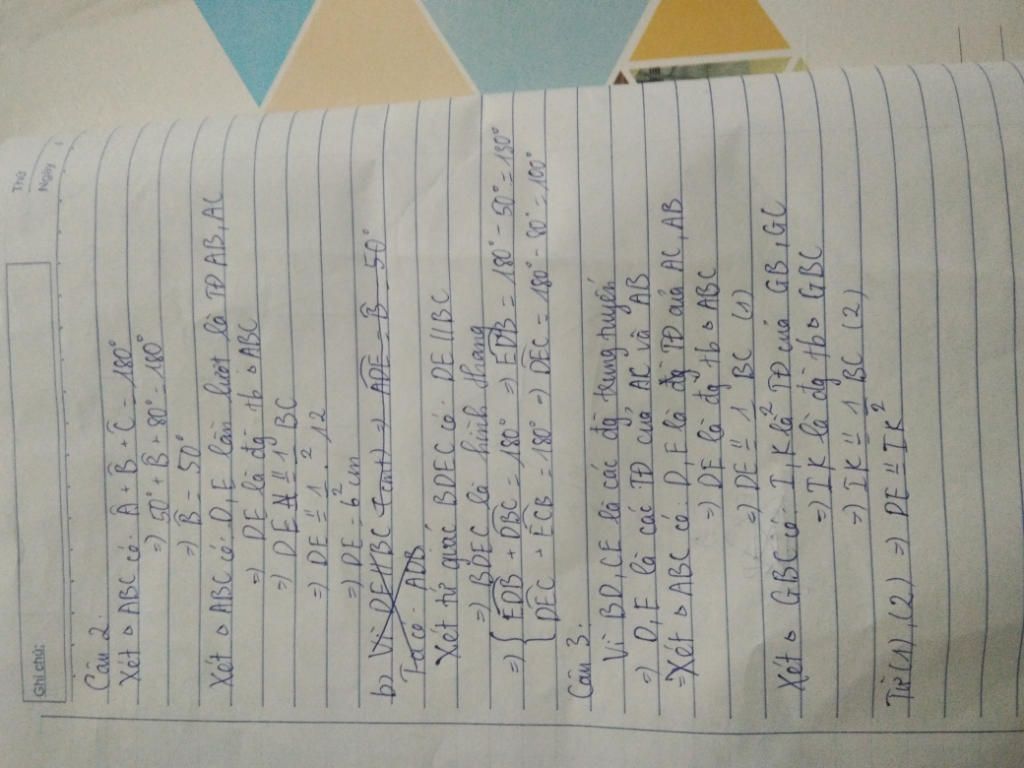 Ghi chú:
Thứ
Ngày
Câu 2.
Xét ▵ ABC có: Â + B̂ + Ĉ = 180°
=) 50° + B̂ + 80° = 180°
=) B̂ = 50°
Xét ▵ ABC có: D, E lần lượt là TĐ AB, AC
=) DE là đg tb ▵ ABC
=) DE = 1/2 BC
=) DE = 1/2 . 12
=) DE = 6 cm
b) Vì DE // BC (cmt) =) ADE = B̂ = 50°
Ta có: ADB
Xét tứ giác BDEC có: DE // BC
=) BDEC là hình thang
=) { EDB + DBC = 180° =) EDB = 180° - 50° = 130°
DEC + ECB = 180° =) DEC = 180° - 80° = 100°
Câu 3.
Vì BD, CE là các đg trung tuyến
=) D, E là các TĐ của AC và AB
=) Xét ▵ ABC có: D, E là TĐ của AC, AB
=) DE là đg tb ▵ ABC
=) DE = 1/2 BC (1)
Xét ▵ GBC có: I, K là TĐ của GB, GC
=) IK là đg tb ▵ GBC
=) IK = 1/2 BC (2)
Từ (1), (2) =) DE = IK